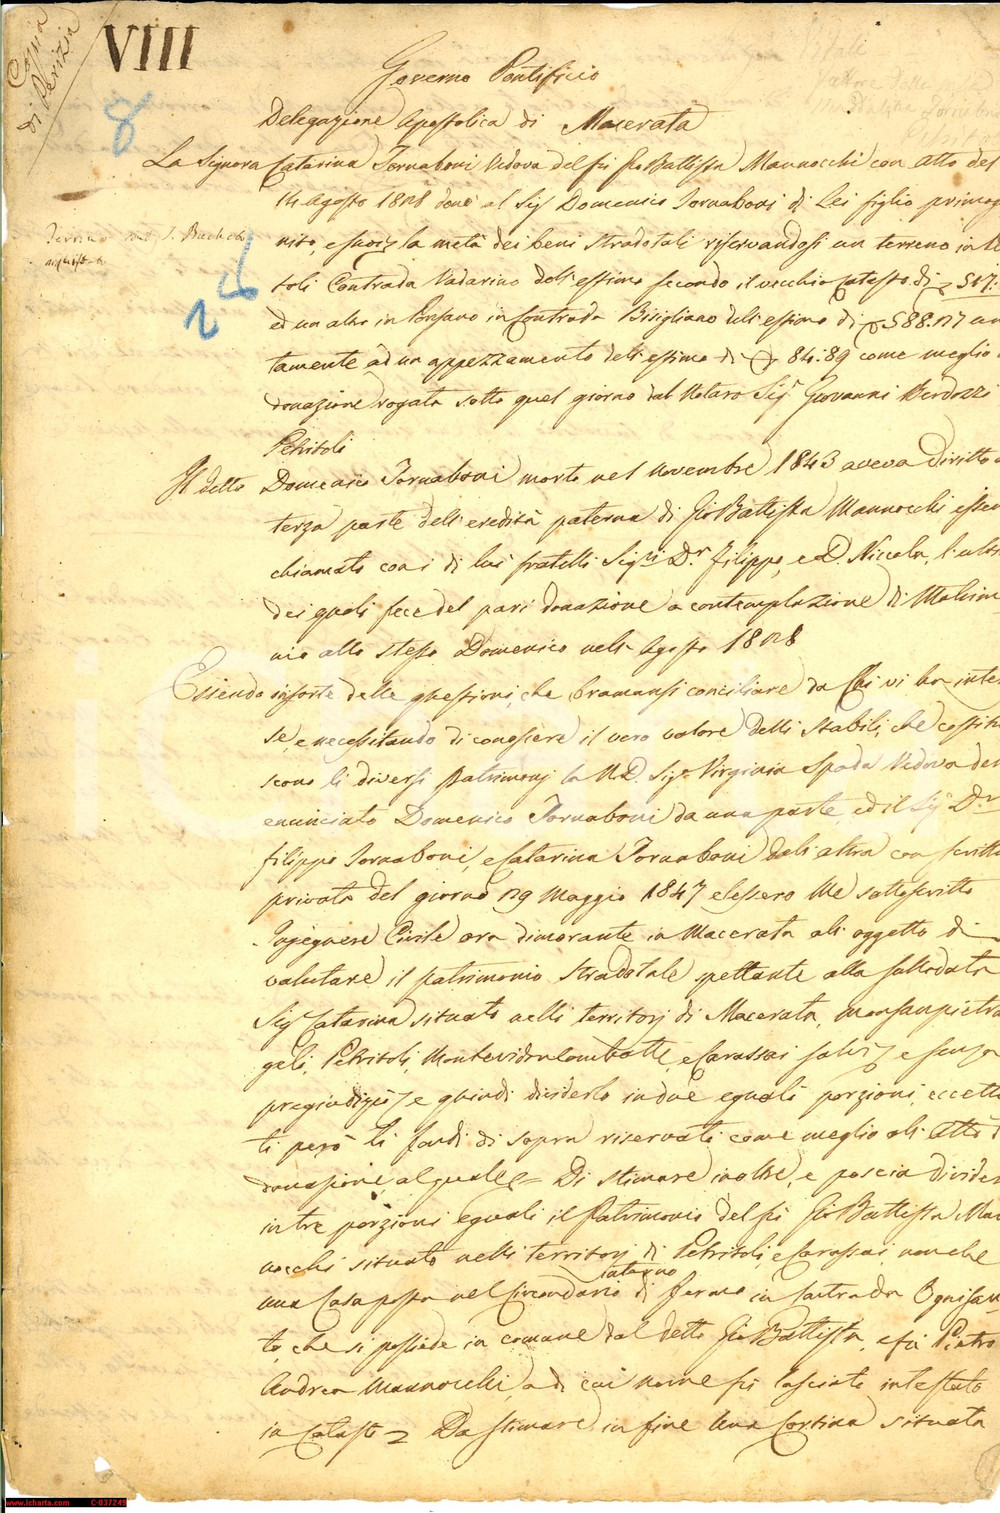 Copia
di Perizia
VIII
8
Governo Pontificio
Delegazione Apostolica di Macerata
La Signora Catarina Tornaboni Vedova del fù Gio Battista Mannocchi con atto del
14 Agosto 1828 donò al Sig Domenico Tornaboni di Lei figlio primoge
nito, e suoi la metà dei beni stradotali riservandosi un terreno in Pe
Terreno
acquisto
26
toli Contrada Vadarino dell'estimo secondo il vecchio Catasto di 517:
ed un altro in Ponzano in Contrada Bisigliano dell'estimo di 588.27 un
tamente ad un appezzamento dell'estimo di 84:89 come meglio
donazione rogata sotto quel giorno dal Notaro Sig.r Giovanni Berdozzi
Petritoli
Il detto Domenico Tornaboni morto nel novembre 1843 aveva diritto a
terza parte dell'eredità paterna di Gio Battista Mannocchi essen
chiamato con i di lui fratelli Sig.ri D.r Filippo, e D. Niccola, l'ulti
dei quali fece del pari donazione a contemplazione di Matrim
nio allo stesso Domenico nell'Agosto 1828
Essendo insorte delle questioni, che bramansi conciliare da Chi vi ha inter
se, e necessitando di conoscere il vero valore delli stabili, che costitu
scono li diversi Patrimonj la N.D. Sig.a Virginia Spada Vedova del
enunciato Domenico Tornaboni da una parte, ed il Sig D.r
Filippo Tornaboni, e Catarina Tornaboni dall'altra con scritta
privata del giorno 29 Maggio 1847 elessero Me sottoscritto
Ingegnere Civile ora dimorante in Macerata all'oggetto di
valutare il patrimonio Stradotale spettante alla sullodata
Sig Catarina situato nelli territorj di Macerata, Monsanpietran
geli, Petritoli, Montevidoncombatte, e Carassai salvi e senza
pregiudizio e quindi dividerlo in due eguali porzioni, eccettua
ti però li fondi di sopra riservati come meglio all'Atto di
donazione, al quale = Di stimare inoltre, e poscia divider
in tre porzioni eguali il Patrimonio del fù Gio Battista Man
nocchi situato nelli territorj di Petritoli, e Carassai, nonchè
interno
una Casa posta nel Circondario di Fermo in Contrada Ognisan
to, che si possiede in comune dal detto Gio Battista, e fù Pietro
Andrea Mannocchi, a di cui nome fù lasciato intestato
in Catasto = Da stimare in fine Una Cortina situata
www.icharta.com C-037249